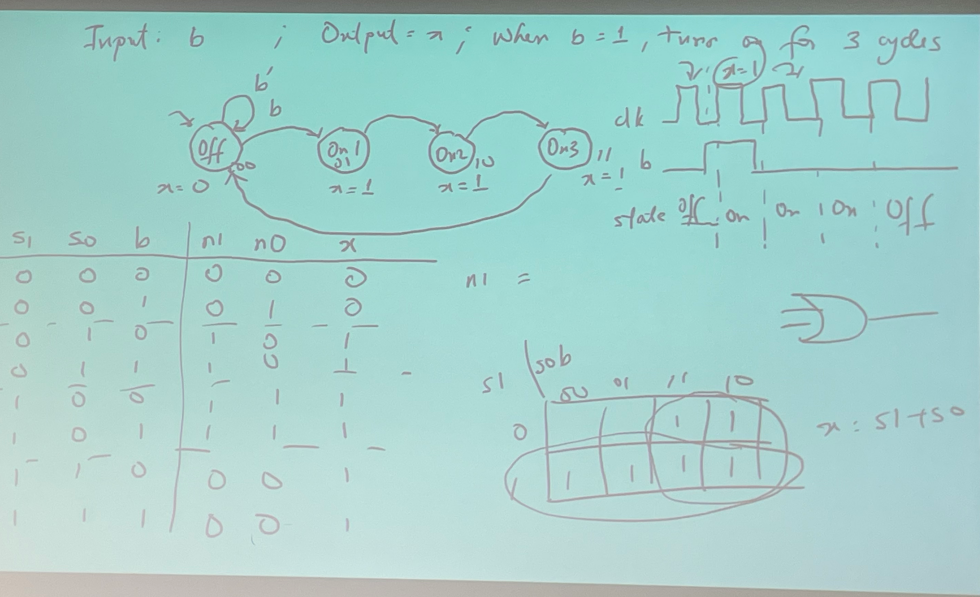 Input: b ; Output = x ; when b = 1, turn on for 3 cycles
b'
b
x=1
clk
Off
00
On1
01
On2
10
On3
11
x=0
x=1
x=1
x=1
b
state Off On On On Off
s1 s0 b n1 n0 x
0 0 0 0 0 0
0 0 1 0 1 0
0 1 0 1 0 1
0 1 1 1 0 1
1 0 0 1 1 1
1 0 1 1 1 1
1 1 0 0 0 1
1 1 1 0 0 1
n1 =
s1 s0b
00 01 11 10
0 1 1
1 1 1 1 1
x = s1+s0